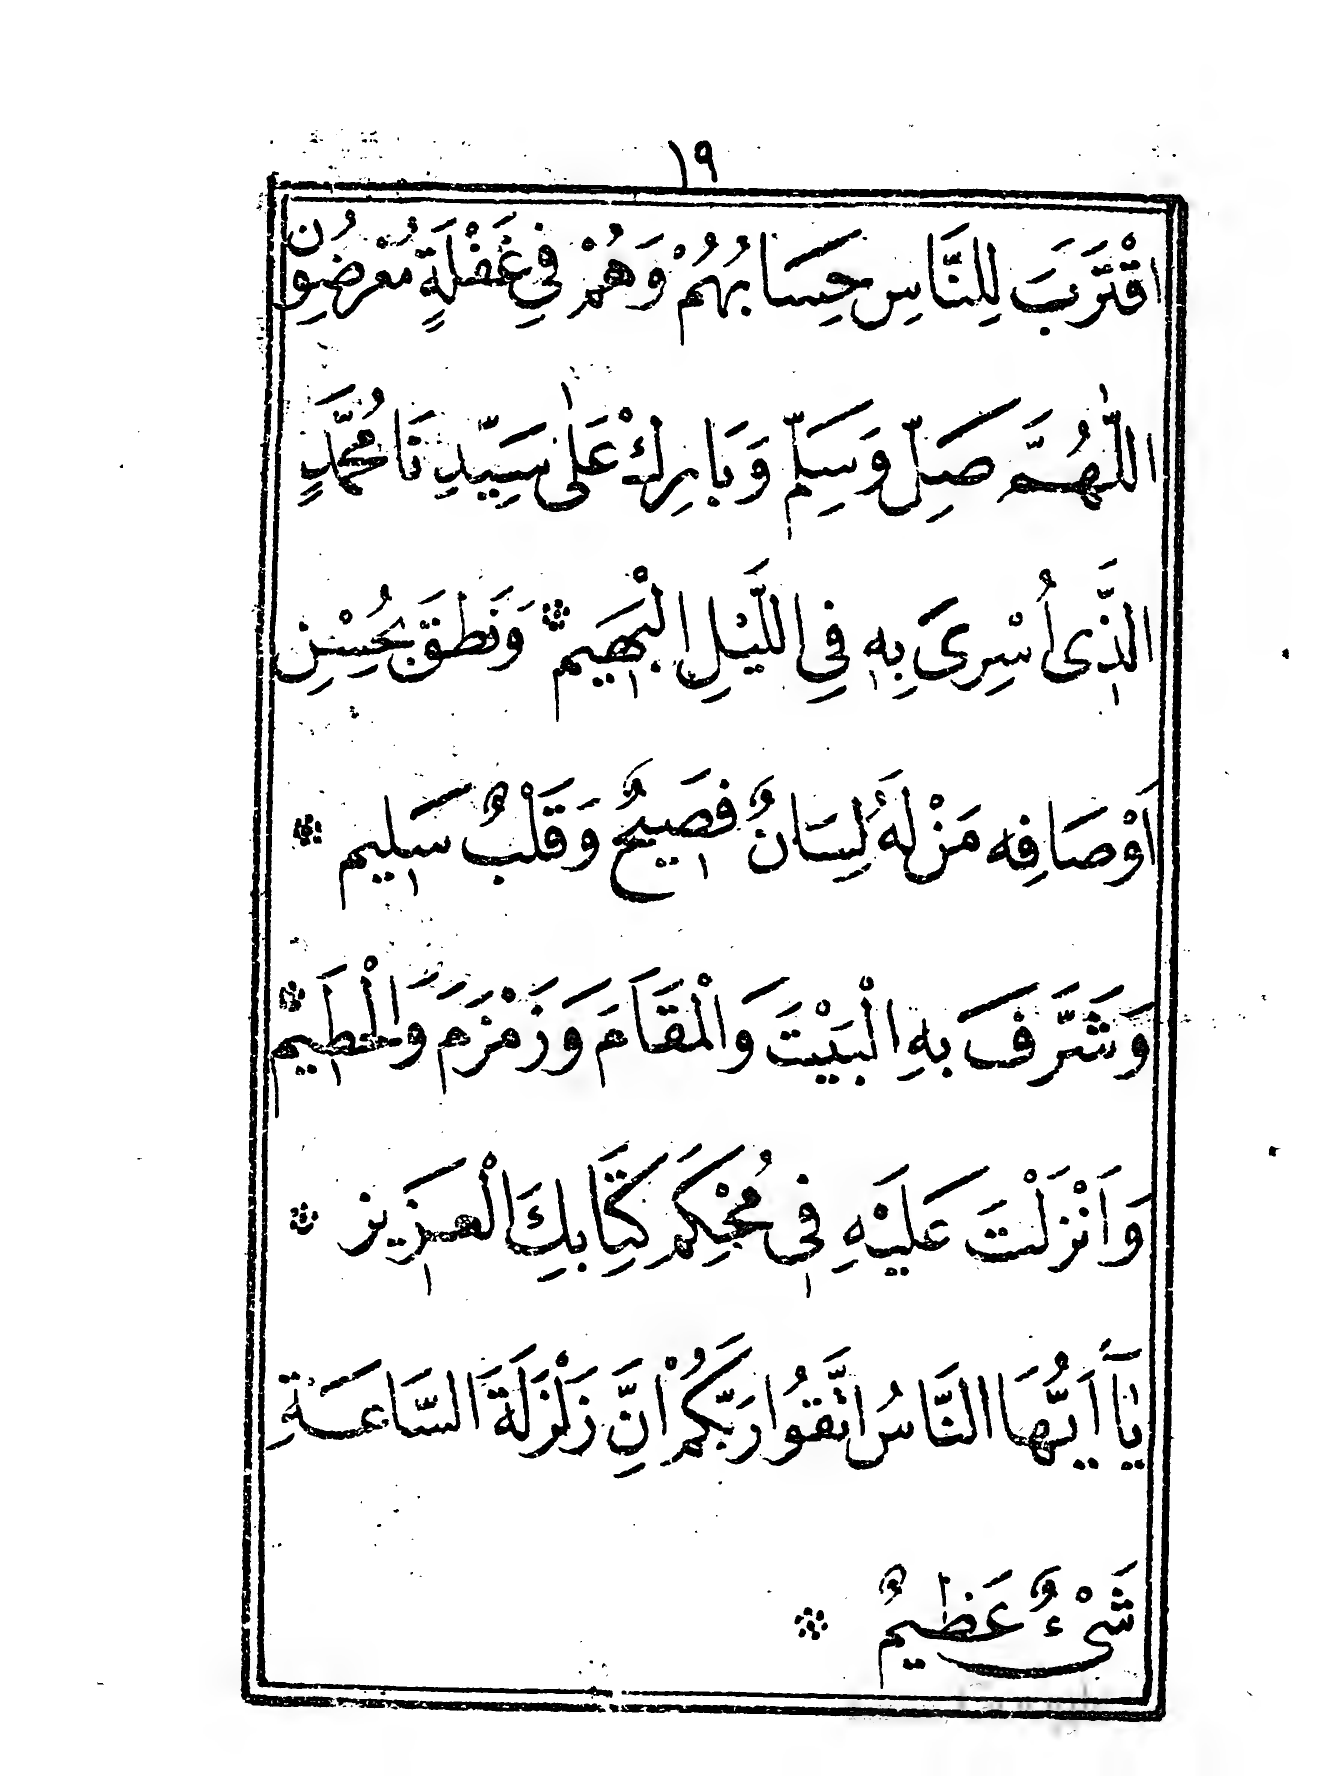 ١٩
اقْتَرَبَ لِلنَّاسِ حِسَابُهُمْ وَهُمْ فِي غَفْلَةٍ مُعْرِضُونَ
اللّٰهُمَّ صَلِّ وَسَلِّمْ وَبَارِكْ عَلٰى سَيِّدِنَا مُحَمَّدٍ
الَّذِى أُسْرِىَ بِهِ فِي اللَّيْلِ الْبَهِيمِ ۞ وَنَطَقَ بِحُسْنِ
اَوْصَافِهِ مَنْ لَهُ لِسَانٌ فَصِيحٌ وَقَلْبٌ سَلِيم ۞
وَشَرَّفَ بِهِ الْبَيْتَ وَالْمَقَامَ وَزَمْزَمَ وَالْحَطِيمْ ۞
وَاَنْزَلْتَ عَلَيْهِ فِى مُحْكَمِ كِتَابِكَ الْعَزِيزِ ۞
يَاٰ اَيُّهَا النَّاسُ اتَّقُوا رَبَّكُمْ اِنَّ زَلْزَلَةَ السَّاعَةِ
شَىْءٌ عَظِيمٌ ۞